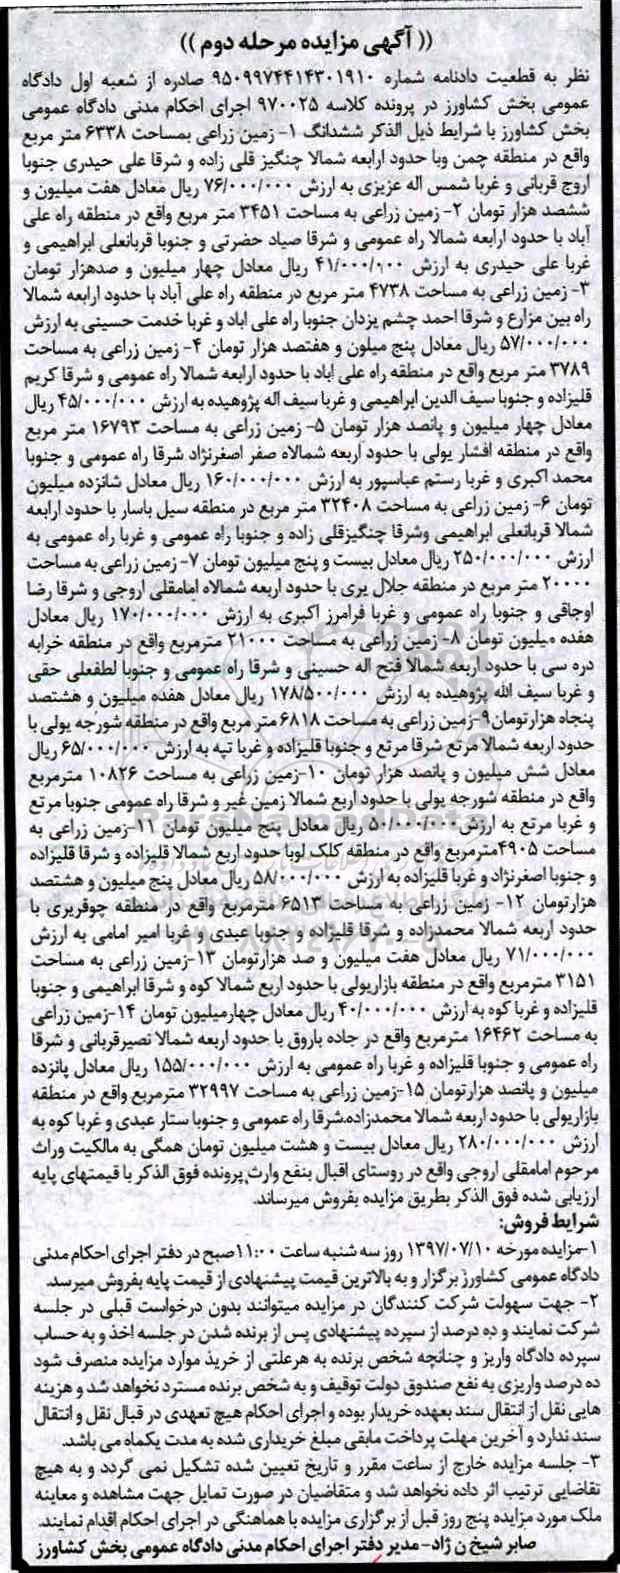 (( آگهی مزایده مرحله دوم ))
نظر به قطعیت دادنامه شماره ۹۵۰۹۹۷۴۴۱۴۳۰۱۹۱۰ صادره از شعبه اول دادگاه
عمومی بخش کشاورز در پرونده کلاسه ۹۷۰۰۲۵ اجرای احکام مدنی دادگاه عمومی
بخش کشاورز با شرایط ذیل الذکر ششدانگ ۱- زمین زراعی بمساحت ۶۳۳۸ متر مربع
واقع در منطقه چمن وبا حدود ارابعه شمالا چنگیز قلی زاده و شرقا علی حیدری جنوبا
اروج قربانی و غربا شمس اله عزیزی به ارزش ۷۶/۰۰۰/۰۰۰ ریال معادل هفت میلیون و
ششصد هزار تومان ۲- زمین زراعی به مساحت ۳۴۵۱ متر مربع واقع در منطقه راه علی
آباد با حدود ارابعه شمالا راه عمومی و شرقا صیاد حضرتی و جنوبا قربانعلی ابراهیمی و
غربا علی حیدری به ارزش ۴۱/۰۰۰/۰۰۰ ریال معادل چهار میلیون و صدهزار تومان
۳- زمین زراعی به مساحت ۴۷۳۸ متر مربع در منطقه راه علی آباد با حدود ارابعه شمالا
راه بین مزارع و شرقا احمد چشم یزدان جنوبا راه علی اباد و غربا خدمت حسینی به ارزش
۵۷/۰۰۰/۰۰۰ ریال معادل پنج میلون و هفتصد هزار تومان ۴- زمین زراعی به مساحت
۳۷۸۹ متر مربع واقع در منطقه راه علی اباد با حدود ارابعه شمالا راه عمومی و شرقا کریم
قلیزاده و جنوبا سیف الدین ابراهیمی و غربا سیف اله پژوهیده به ارزش ۴۵/۰۰۰/۰۰۰ ریال
معادل چهار میلیون و پانصد هزار تومان ۵- زمین زراعی به مساحت ۱۶۷۹۳ متر مربع
واقع در منطقه افشار یولی با حدود اربعه شمالاه صفر اصغرنژاد شرقا راه عمومی و جنوبا
محمد اکبری و غربا رستم عباسپور به ارزش ۱۶۰/۰۰۰/۰۰۰ ریال معادل شانزده میلیون
تومان ۶- زمین زراعی به مساحت ۳۲۴۰۸ متر مربع در منطقه سیل باسار با حدود ارابعه
شمالا قربانعلی ابراهیمی وشرقا چنگیزقلی زاده و جنوبا راه عمومی و غربا راه عمومی به
ارزش ۲۵۰/۰۰۰/۰۰۰ ریال معادل بیست و پنج میلیون تومان ۷- زمین زراعی به مساحت
۲۰۰۰۰ متر مربع در منطقه جلال یری با حدود اربعه شمالاه امامقلی اروجی و شرقا رضا
اوجاقی و جنوبا راه عمومی و غربا فرامرز اکبری به ارزش ۱۷۰/۰۰۰/۰۰۰ ریال معادل
هفده میلیون تومان ۸- زمین زراعی به مساحت ۲۱۰۰۰ مترمربع واقع در منطقه خرابه
دره سی با حدود اربعه شمالا فتح اله حسینی و شرقا راه عمومی و جنوبا لطفعلی حقی
و غربا سیف الله پژوهیده به ارزش ۱۷۸/۵۰۰/۰۰۰ ریال معادل هفده میلیون و هشتصد
پنجاه هزارتومان۹-زمین زراعی به مساحت ۶۸۱۸ متر مربع واقع در منطقه شورجه یولی با
حدود اربعه شمالا مرتع شرقا مرتع و جنوبا قلیزاده و غربا تپه به ارزش ۶۵/۰۰۰/۰۰۰ ریال
معادل شش میلیون و پانصد هزار تومان ۱۰-زمین زراعی به مساحت ۱۰۸۲۶ مترمربع
واقع در منطقه شورجه یولی با حدود اربع شمالا زمین غیر و شرقا راه عمومی جنوبا مرتع
و غربا مرتع به ارزش۵۰/۰۰۰/۰۰۰ ریال معادل پنج میلیون تومان ۱۱-زمین زراعی به
مساحت ۴۹۰۵مترمربع واقع در منطقه کلک لوبا حدود اربع شمالا قلیزاده و شرقا قلیزاده
و جنوبا اصغرنژاد و غربا قلیزاده به ارزش ۵۸/۰۰۰/۰۰۰ ریال معادل پنج میلیون و هشتصد
هزارتومان ۱۲- زمین زراعی به مساحت ۶۵۱۳ مترمربع واقع در منطقه چوقریری با
حدود اربعه شمالا محمدزاده و شرقا قلیزاده و جنوبا عبدی و غربا امیر امامی به ارزش
۷۱/۰۰۰/۰۰۰ ریال معادل هفت میلیون و صد هزارتومان ۱۳-زمین زراعی به مساحت
۳۱۵۱ مترمربع واقع در منطقه بازاریولی با حدود اربع شمالا کوه و شرقا ابراهیمی و جنوبا
قلیزاده و غربا کوه به ارزش ۴۰/۰۰۰/۰۰۰ ریال معادل چهارمیلیون تومان ۱۴-زمین زراعی
به مساحت ۱۶۴۶۲ مترمربع واقع در جاده باروق با حدود اربعه شمالا نصیرقربانی و شرقا
راه عمومی و جنوبا قلیزاده و غربا راه عمومی به ارزش ۱۵۵/۰۰۰/۰۰۰ ریال معادل پانزده
میلیون و پانصد هزارتومان ۱۵-زمین زراعی به مساحت ۳۲۹۹۷ مترمربع واقع در منطقه
بازاریولی با حدود اربعه شمالا محمدزاده.شرقا راه عمومی و جنوبا ستار عبدی و غربا کوه به
ارزش ۲۸۰/۰۰۰/۰۰۰ ریال معادل بیست و هشت میلیون تومان همگی به مالکیت وراث
مرحوم امامقلی اروجی واقع در روستای اقبال بنفع وارث پرونده فوق الذکر با قیمتهای پایه
ارزیابی شده فوق الذکر بطریق مزایده بفروش میرساند.
شرایط فروش:
۱-مزایده مورخه ۱۳۹۷/۰۷/۱۰ روز سه شنبه ساعت ۱۱:۰۰صبح در دفتر اجرای احکام مدنی
دادگاه عمومی کشاورز برگزار و به بالاترین قیمت پیشنهادی از قیمت پایه بفروش میرسد.
۲- جهت سهولت شرکت کنندگان در مزایده میتوانند بدون درخواست قبلی در جلسه
شرکت نمایند و ده درصد از سپرده پیشنهادی پس از برنده شدن در جلسه اخذ و به حساب
سپرده دادگاه واریز و چنانچه شخص برنده به هرعلتی از خرید موارد مزایده منصرف شود
ده درصد واریزی به نفع صندوق دولت توقیف و به شخص برنده مسترد نخواهد شد و هزینه
هایی نقل از انتقال سند بعهده خریدار بوده و اجرای احکام هیچ تعهدی در قبال نقل و انتقال
سند ندارد و آخرین مهلت پرداخت مابقی مبلغ خریداری شده به مدت یکماه می باشد.
۳- جلسه مزایده خارج از ساعت مقرر و تاریخ تعیین شده تشکیل نمی گردد و به هیچ
تقاضایی ترتیب اثر داده نخواهد شد و متقاضیان در صورت تمایل جهت مشاهده و معاینه
ملک مورد مزایده پنج روز قبل از برگزاری مزایده با هماهنگی در اجرای احکام اقدام نمایند.
صابر شیخ ن ژاد- مدیر دفتر اجرای احکام مدنی دادگاه عمومی بخش کشاورز